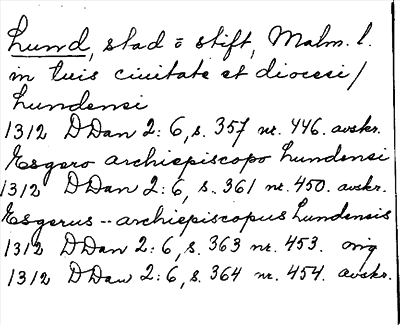 Lund, stad o stift, Malm. l.
in tuis ciuitate et diocesi /
Lundensi
1312 DDan 2:6, s. 357 nr. 446. avskr.
Esgero archiepiscopo Lundensi
1312 DDan 2:6, s. 361 nr. 450. avskr.
Esgerus -- archiepiscopus Lundensis
1312 DDan 2:6, s. 363 nr. 453. orig
1312 DDan 2:6, s. 364 nr. 454. avskr.